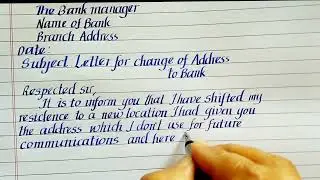 The Bank manager
Name of Bank
Branch Address
Date:
Subject Letter for change of Address
to Bank
Respected sir,
It is to inform you that I have shifted my
residence to a new location I had given you
the address which I don't use for future
communications and here